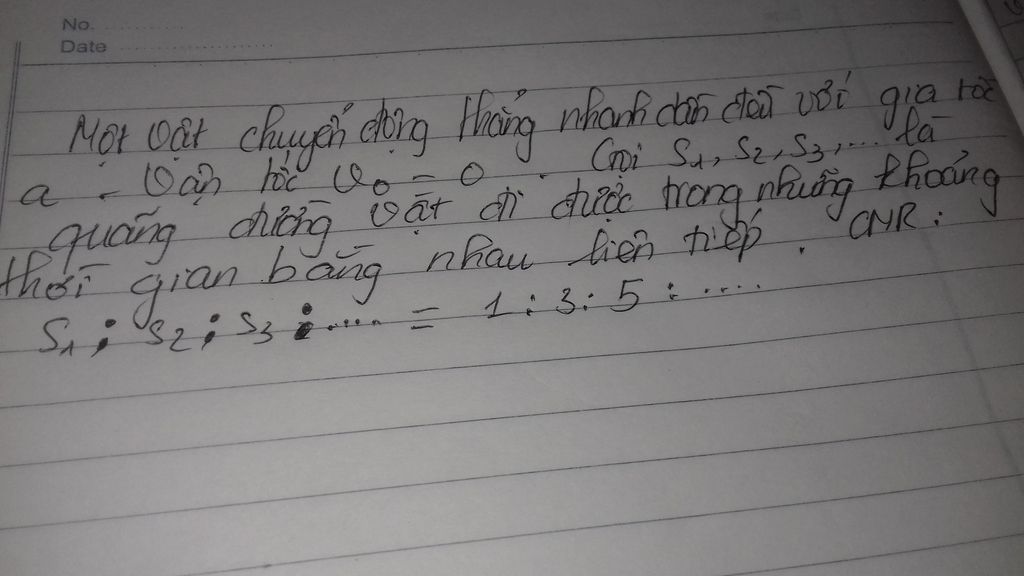 No. ............
Date ............
Một vật chuyển động thẳng nhanh dần đều với gia tốc
a . Vận tốc v₀ = 0 . Gọi S₁, S₂, S₃, .... là
quãng đường vật đi được trong những khoảng
thời gian bằng nhau liên tiếp . CMR :
S₁ : S₂ : S₃ : .... = 1 : 3 : 5 : ....